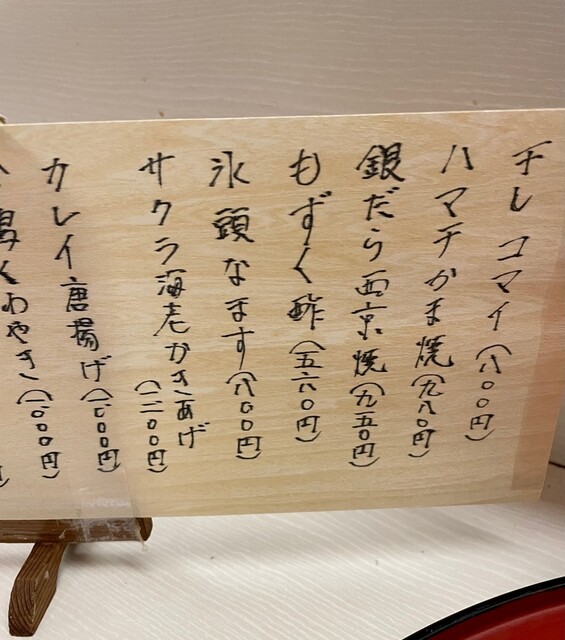 干しコマイ(八〇〇円)
ハマチかま焼(九八〇円)
銀だら西京焼(九五〇円)
もずく酢(五六〇円)
氷頭なます(八〇〇円)
サクラ海老かきあげ(一二〇〇円)
カレイ唐揚げ(一二〇〇円)
くわやき(一〇〇〇円)